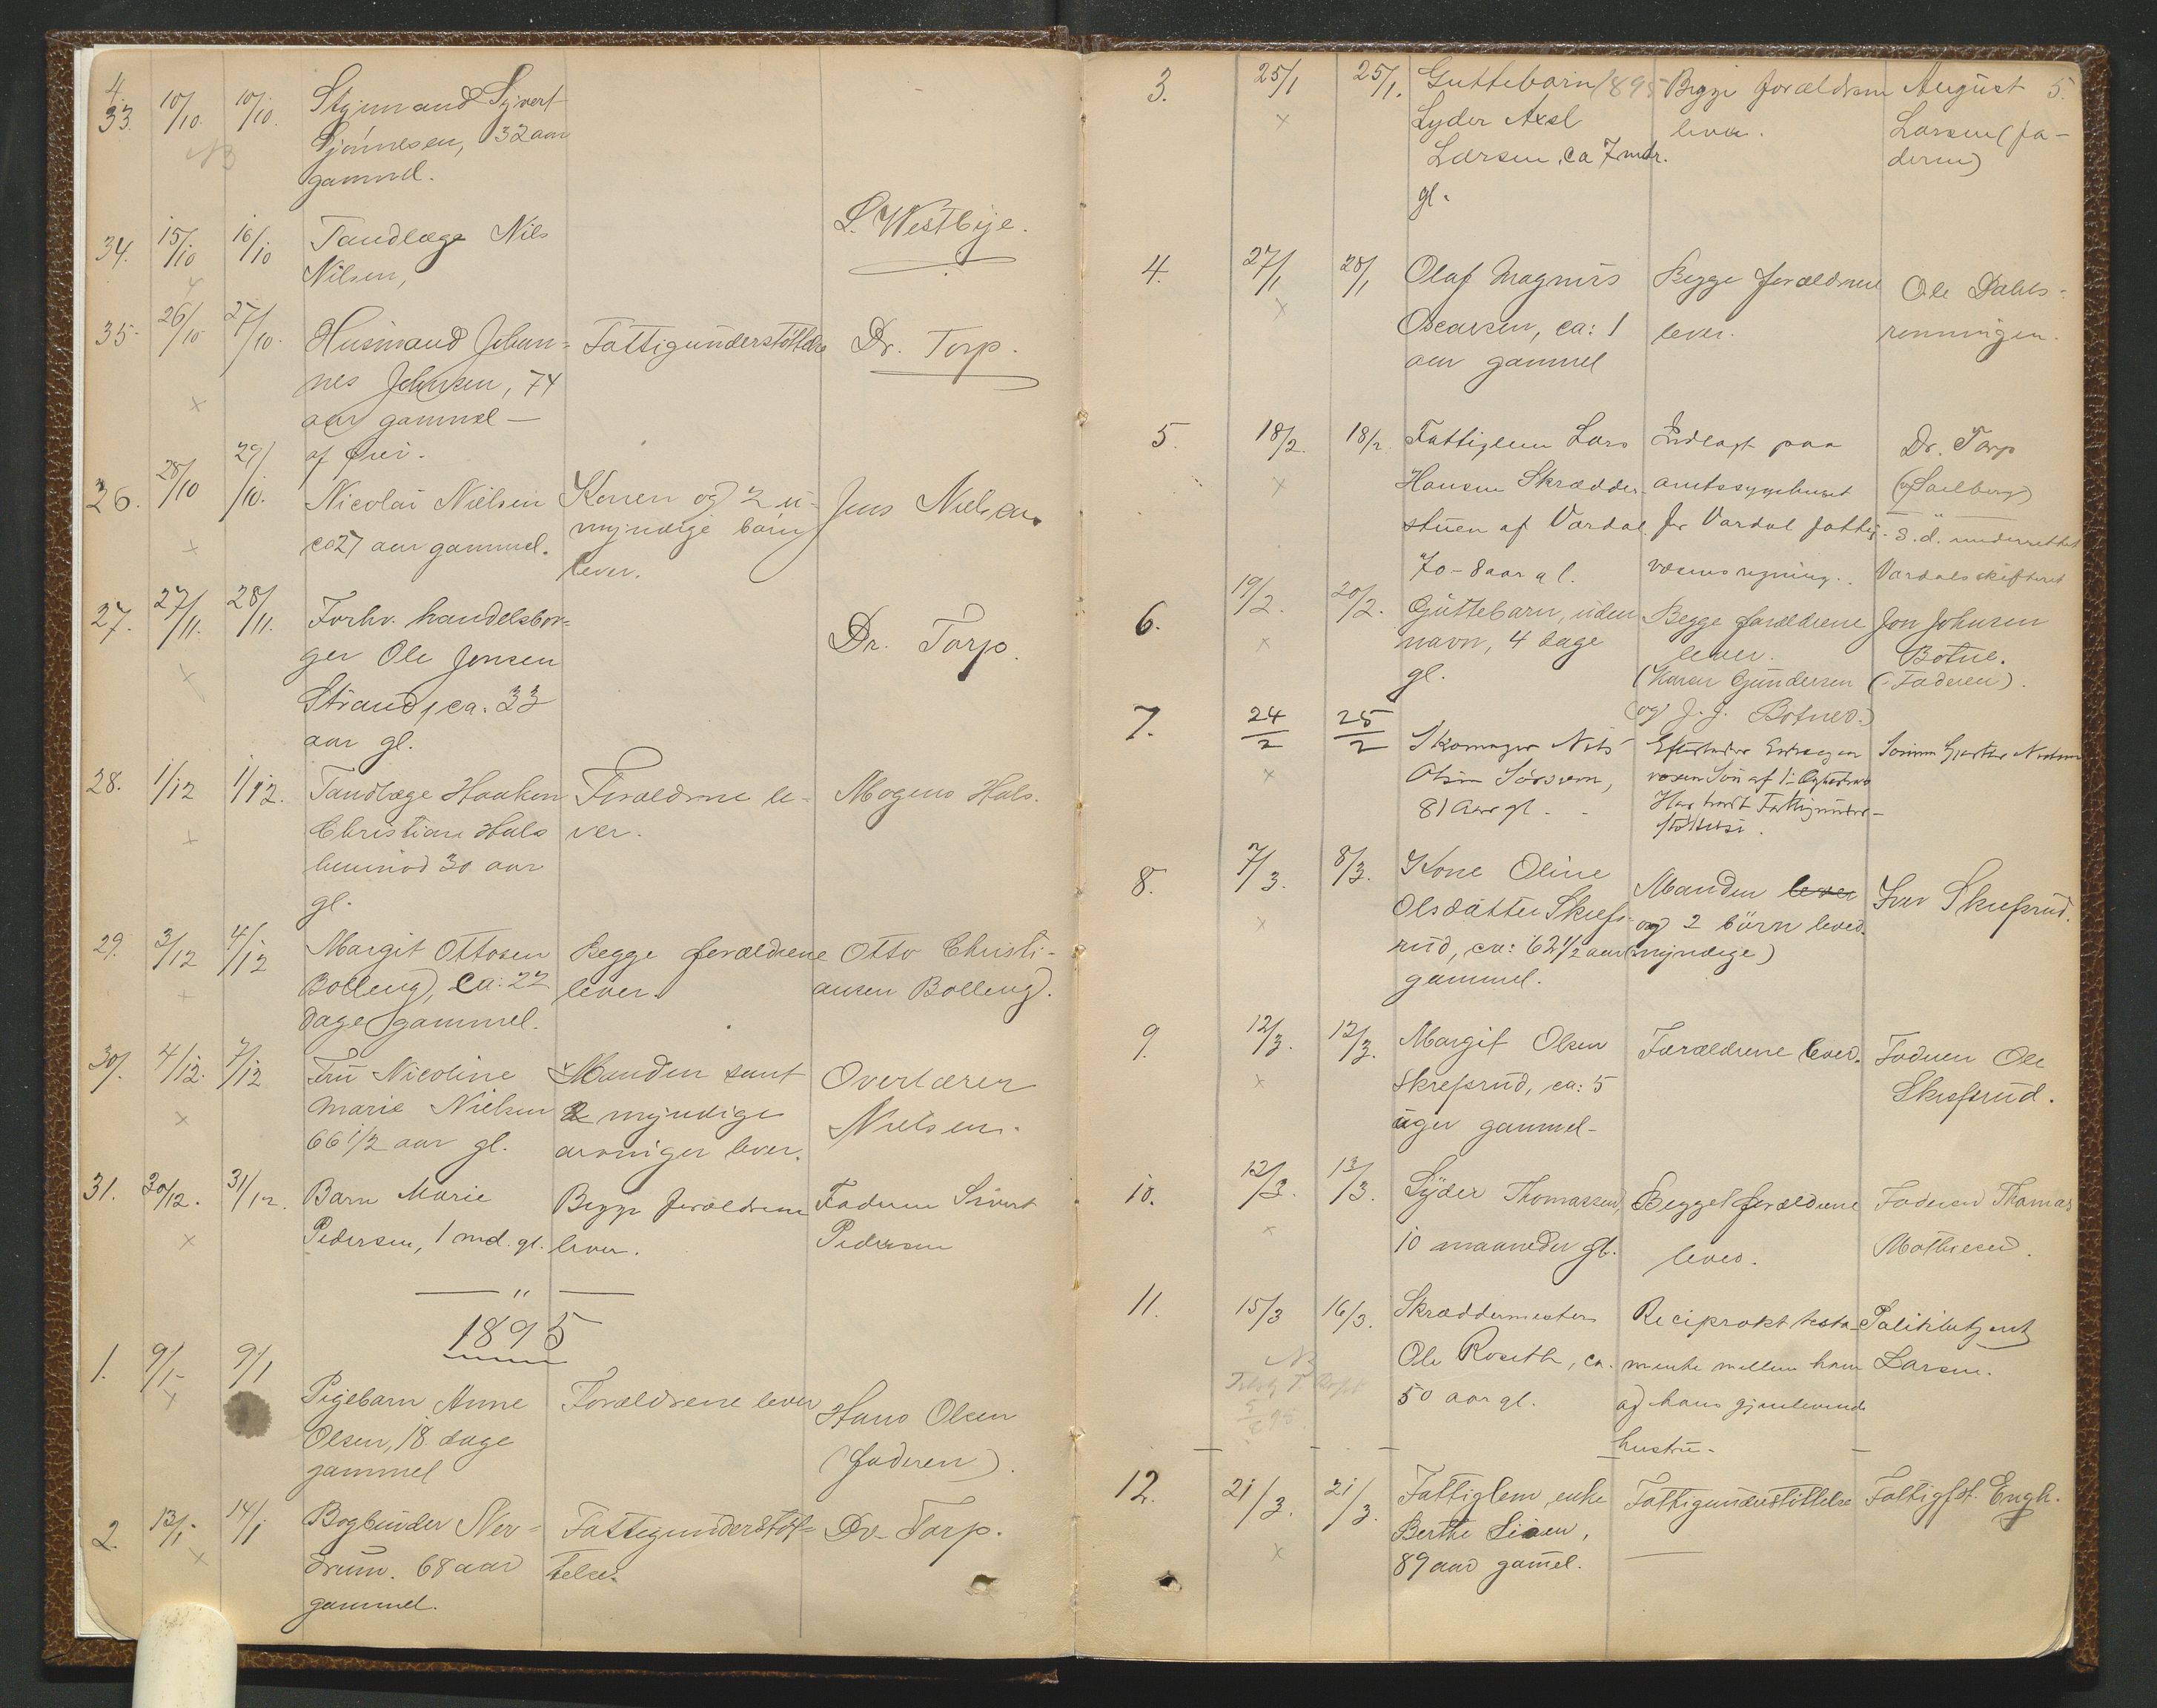 4.
33. 10/10. 10/10. Styrmand Syvert
NB Sjönnesen, 32 aar
gammel.
L. Westbye.
34. 15/10 16/10 Tandlæge Nils
Nilsen,
35. 26/10 27/10. Husmand Johan- Fattigunderstöttelse Dr. Torp.
nes Johnsen, 74
x aar gammel —
af
26. 28/10 29/10. Nicolai Nielsen Konen og 2 u- Jens Nielsen.
x ca 27 aar gammel. myndige börn
lever.
27. 27/11. 28/11. Forhv. handelsbor- Dr. Torp.
x ger Ole Jensen
Strand, ca. 33
aar gl.
28. 1/12 1/12. Tandlæge Haaken Forældrene le- Mogens Hals.
x Christian Hals ver.
30 aar
gl.
29. 3/12 4/12 Margit Ottosen Begge forældrene Otto Christi-
x Bolleng, ca: 22 lever. ansen Bolleng.
dage gammel.
30. 4/12. 7/12 Fru Nicoline Manden samt Overlærer
x Marie Nielsen 2 myndige Nielsen.
66 1/2 aar gl. arvinger lever.
31. 30/12. 31/12. Barn Marie Begge forældrene Faderen Sivert
x Pedersen, 1 md. gl. lever. Pedersen
— " —
1895
1. 9/1- 9/1
x Pigebarn Anne Forældrene lever Hans Olsen
Olsen, 18 dage (faderen).
gammel
2. 13/1- 14/1 Bogbinder Ner- Fattigunderstöt- Dr. Torp.
x drum. 68 aar telse.
gammel.
5.
3. 25/1 25/1. Guttebarn 1895 Begge forældrene August
x Lyder Axel lever. Larsen (fa-
Larsen, ca 7 mdr. deren)
gl.
4. 27/1 28/1 Olaf Magnus Begge forældrene Ole Dahls-
x Oscarsen, ca: 1 lever. renningen.
aar gammel
5. 18/2. 18/2. Fattiglem Lars Indlagt paa Dr. Torp
x Hansen Skrædder- amtssygehuset
stuen af Vardal for Vardal fattig- s. d. underrettet
70-8 aar gl. væsens regning. Vardalsskifteret
6. 19/2. 20/2. Guttebarn, uden Begge forældrene Jon Johnsen
x navn, 4 dage lever. Botne.
gl. (Karen Gundersen (Faderen).
og J. J. Botner.)
7. 24/2 25/2 Skomager Nils Efterlader
x Olsen 81 Aar gl. voxen Sön af 1ste Ægteskab
Har havt Fattigunder-
stöttelse.
8. 7/3. 8/3. Kone Oline Manden lever Iver Skrefsrud.
x Olsdatter Skrefs- og 2 börn lever.
rud, ca: 62 1/2 aar (myndige)
gammel.
9. 12/3. 12/3. Margit Olsen Forældrene lever. Faderen Ole
x Skrefsrud, ca: 5 Skrefsrud.
uger gammel-
10. 12/3. 13/3. Lyder Thomassen, Begge forældrene Faderen Thomas
x 10 maaneder gl. lever. Mathisen.
11. 15/3 16/3. Skræddermester Reciprokt testa- Politibetjent
NB Ole Roseth, ca. mente mellem ham Larsen.
50 aar gl. og hans gjenlevende
hustru-
12. 21/3. 21/3. Fattiglem, enke Fattigunderstöttelse Fattigfst. Engh.
x Berthe —
89 aar gamel.